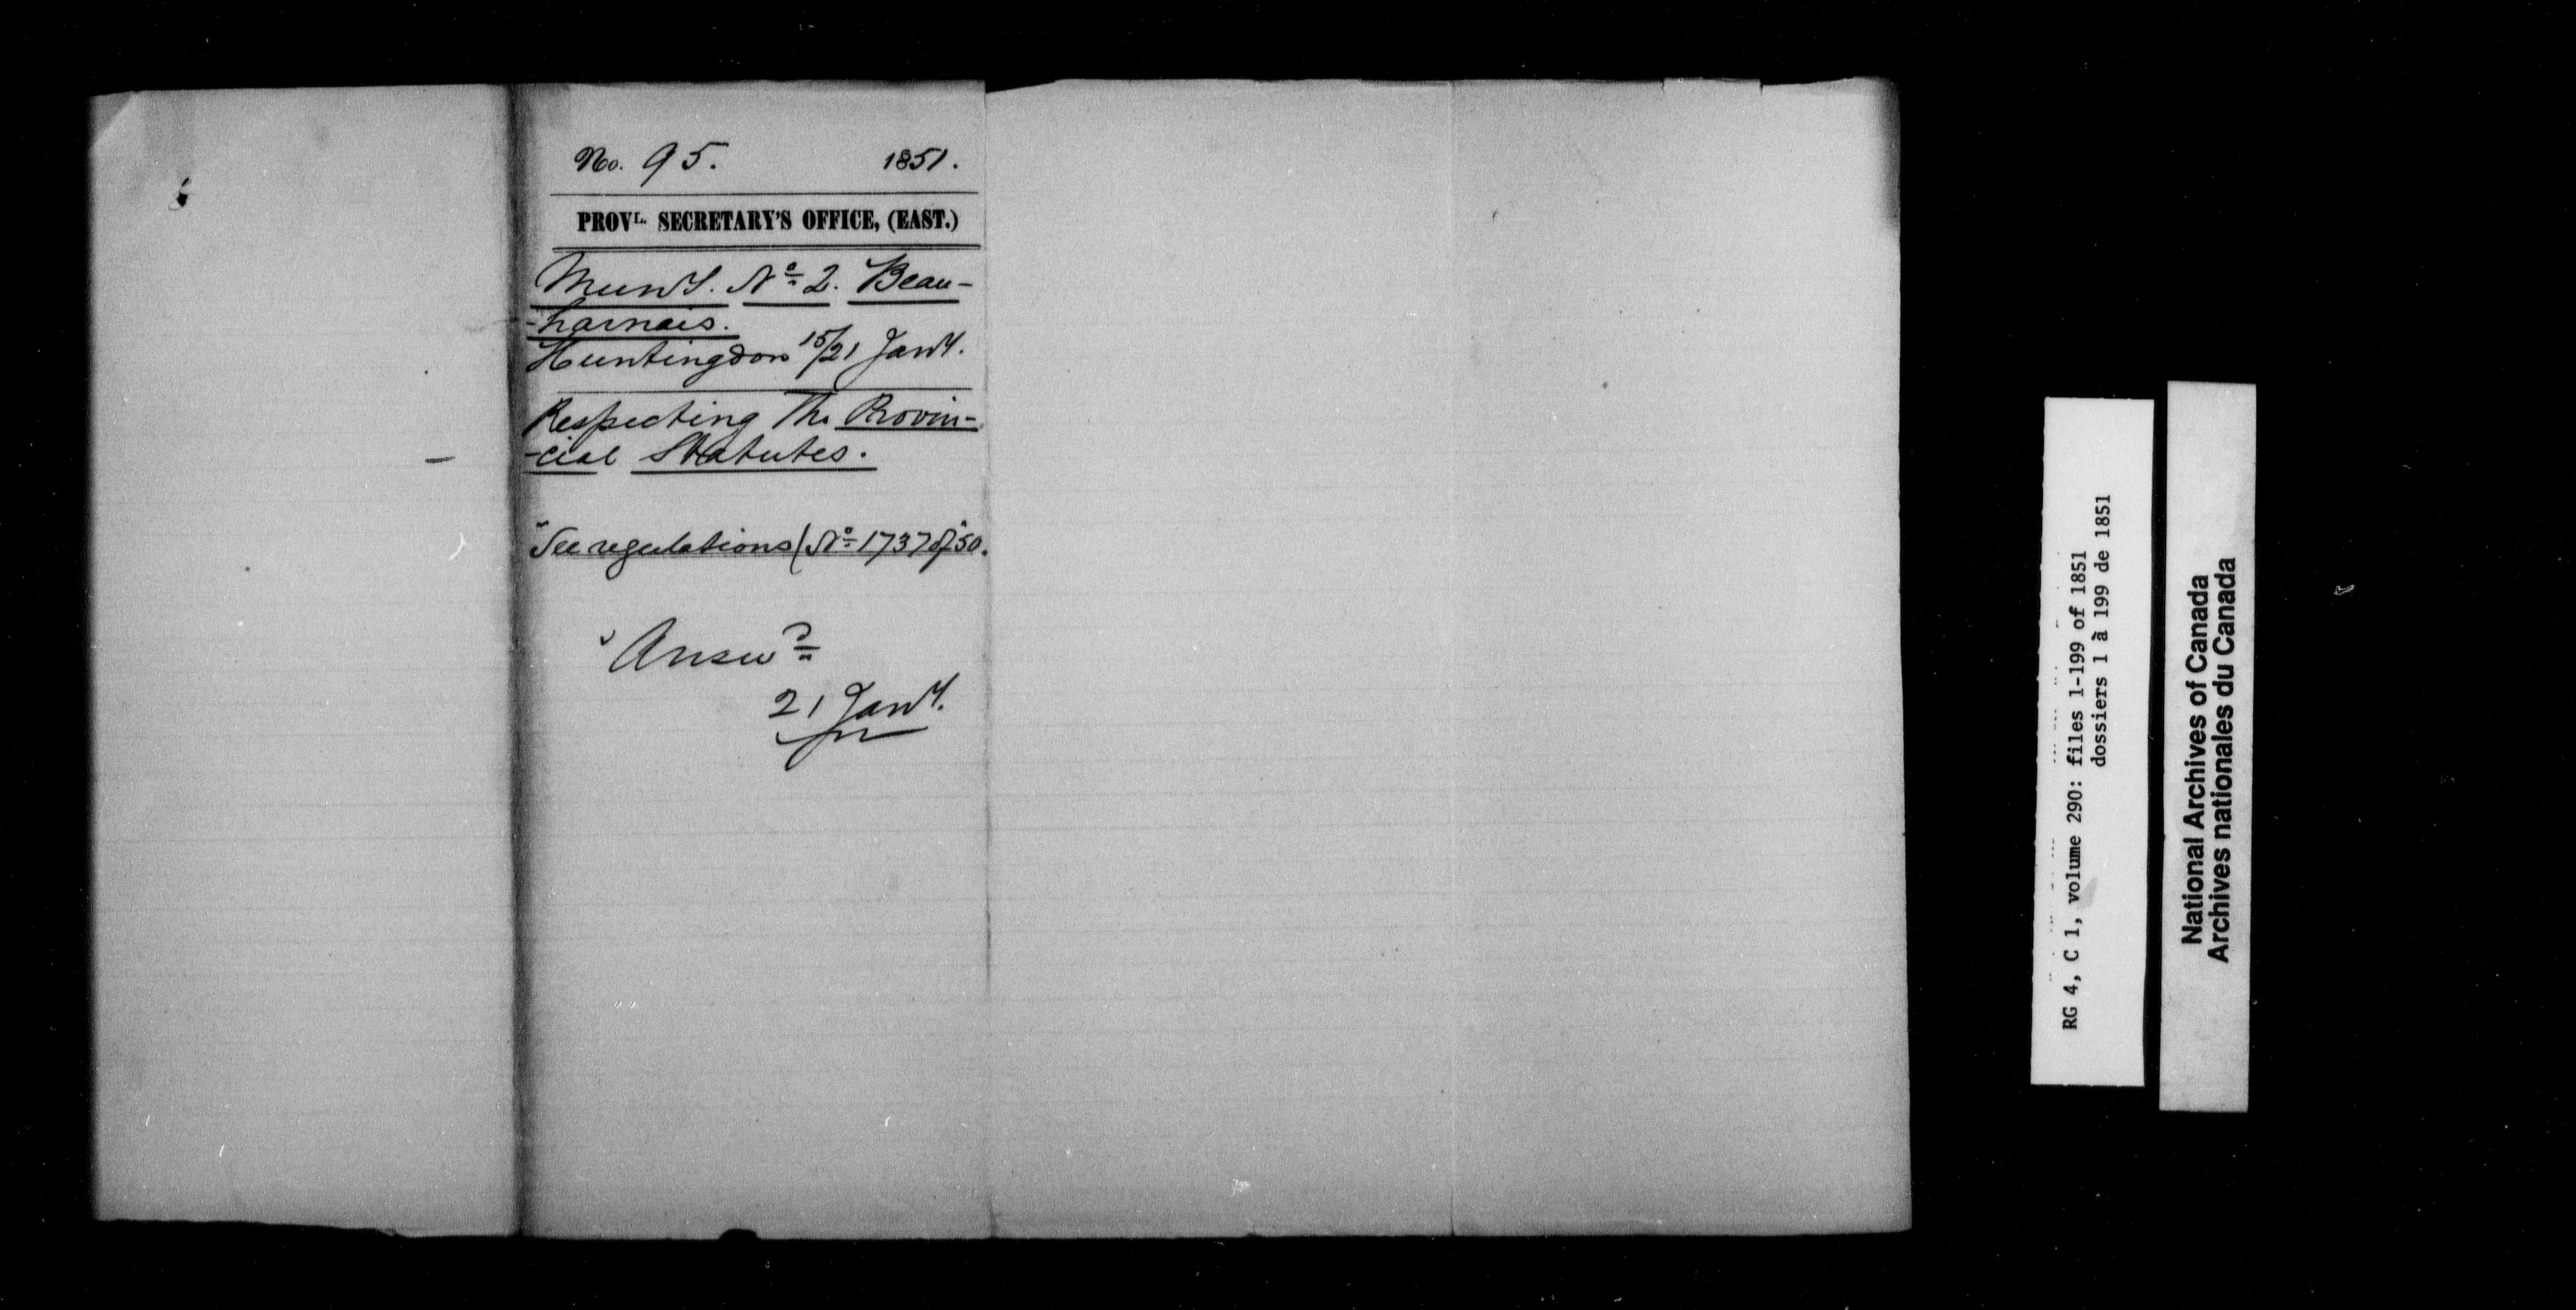 No. 95. 1851.
PROVL. SECRETARY'S OFFICE, (EAST.)
MunY. No 2. Beau-
-harnais.
Huntingdon 15/21 JanY.
Respecting The Provin-
-cial Statutes.
See regulations (No 1737 of 50.
AnswD
21 JanY.
RG 4, C 1, volume 290: files 1-199 of 1851
dossiers 1 à 199 de 1851
National Archives of Canada
Archives nationales du Canada